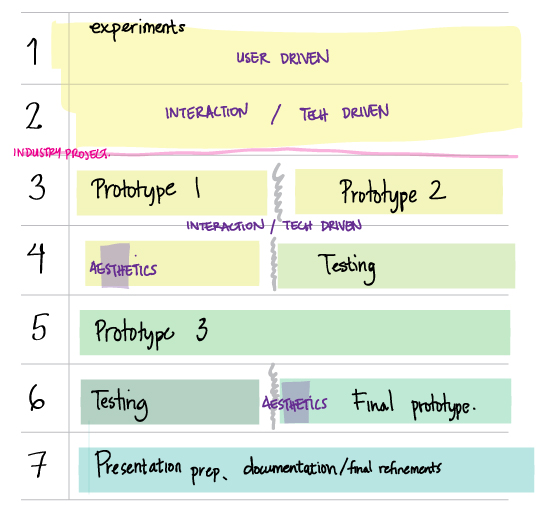 experiments
1 USER DRIVEN
2 INTERACTION / TECH DRIVEN
INDUSTRY PROJECT.
3 Prototype 1 Prototype 2
INTERACTION / TECH DRIVEN
4 AESTHETICS Testing
5 Prototype 3
6 Testing AESTHETICS Final prototype.
7 Presentation prep. documentation/final refinements